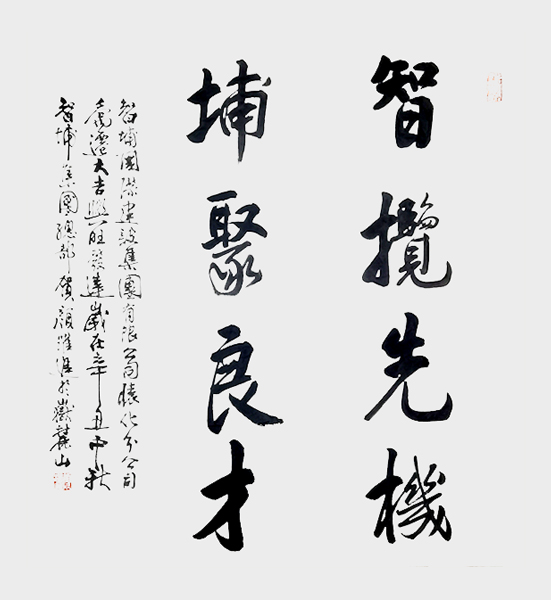 智攬先機
埔聚良才
智埔國際建設集團有限公司懷化分公司
喬遷大吉興旺發達歲在辛丑中秋
智埔集團總部賀顏進於嶽麓山